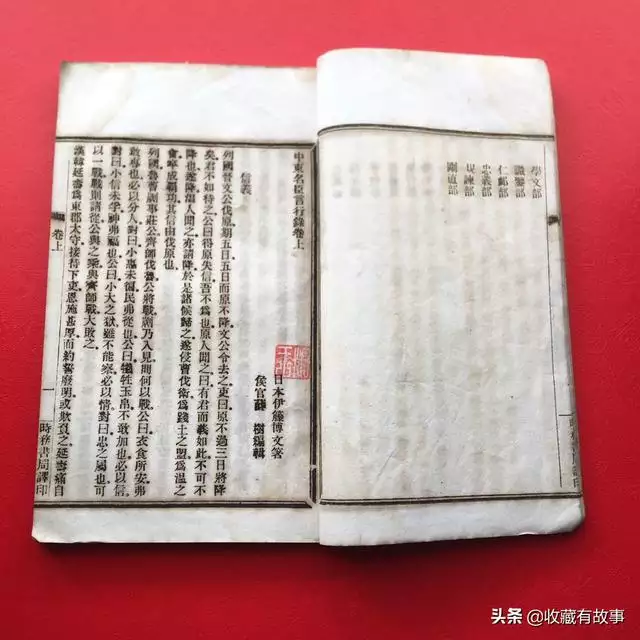 學文部
識鑒部
仁郵部
忠義部
規諫部
剛直部
中東名臣言行錄卷上
日本伊藤博文著
侯官薛 樹編輯
信義
列國晉文公伐原期五日五日而原不降文公令去之吏曰原不過三日將降
矣君不如待之公曰得原失信吾不爲也原人聞之曰有君而義如此不可不
降也遂降溫人聞之亦請降於是諸候歸之遂侵曹伐衛爲踐土之盟爲溫之
會卒成霸功其信由伐原也
列國魯曹劌事莊公齊師伐魯公將戰劌乃入見問何以戰公曰衣食所安弗
敢專也必以分人對曰小惠未徧民弗從也公曰犧牲玉帛不敢加也必以信
對曰小信未孚神弗福也公曰小大之獄雖不能察必以情對曰忠之屬也可
以一戰戰則請從公與之乘與齊師戰大敗之
漢韓延壽爲東郡太守接待下吏恩施甚厚而約誓廢明或欺負之延壽痛自
卷上
一
時務書局譯印
頭条 @收藏有故事